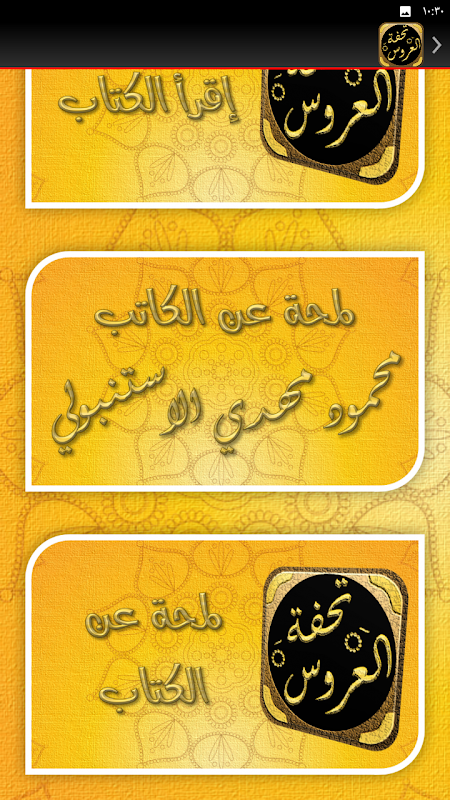 ١٠:٣٠
تحفة
العروس
إقرأ الكتاب
العروس
لمحة عن الكاتب
محمود مهدي الاستنبولي
لمحة عن
الكتاب
تحفة
العروس